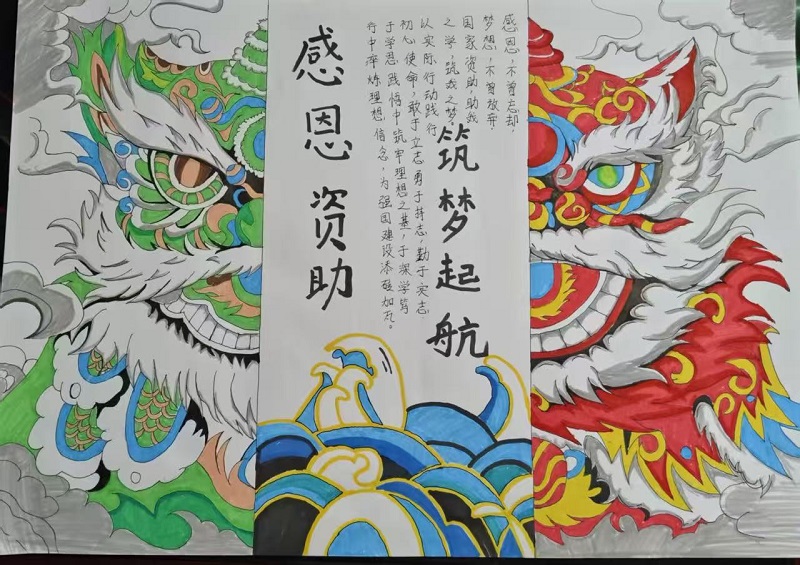 感恩资助
筑梦起航
感恩，不曾忘却，
梦想，不曾放弃，
国家资助，助我
之学，筑我之梦。
以实际行动践行
初心使命，敢于立志，勇于持志，勤于实志，
于学思践悟中筑牢理想之基，于深学笃
行中淬炼理想信念，为强国建设添砖加瓦。